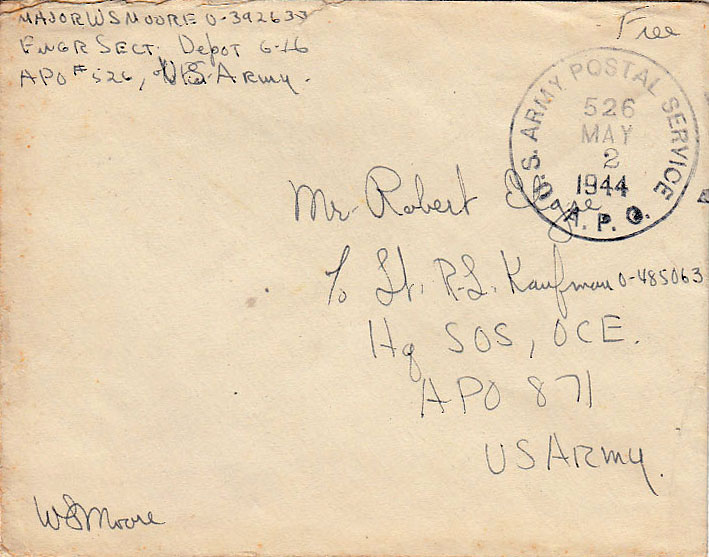 MAJOR W S MOORE O-392633
ENGR SECT. Depot G-16
APO #526, US Army.
Free
U.S. ARMY POSTAL SERVICE
526
MAY
2
1944
A. P. O.
Mr. Robert
℅ Lt. R. L. Kaufman O-485063
Hq SOS, OCE.
APO 871
US Army.
WS Moore